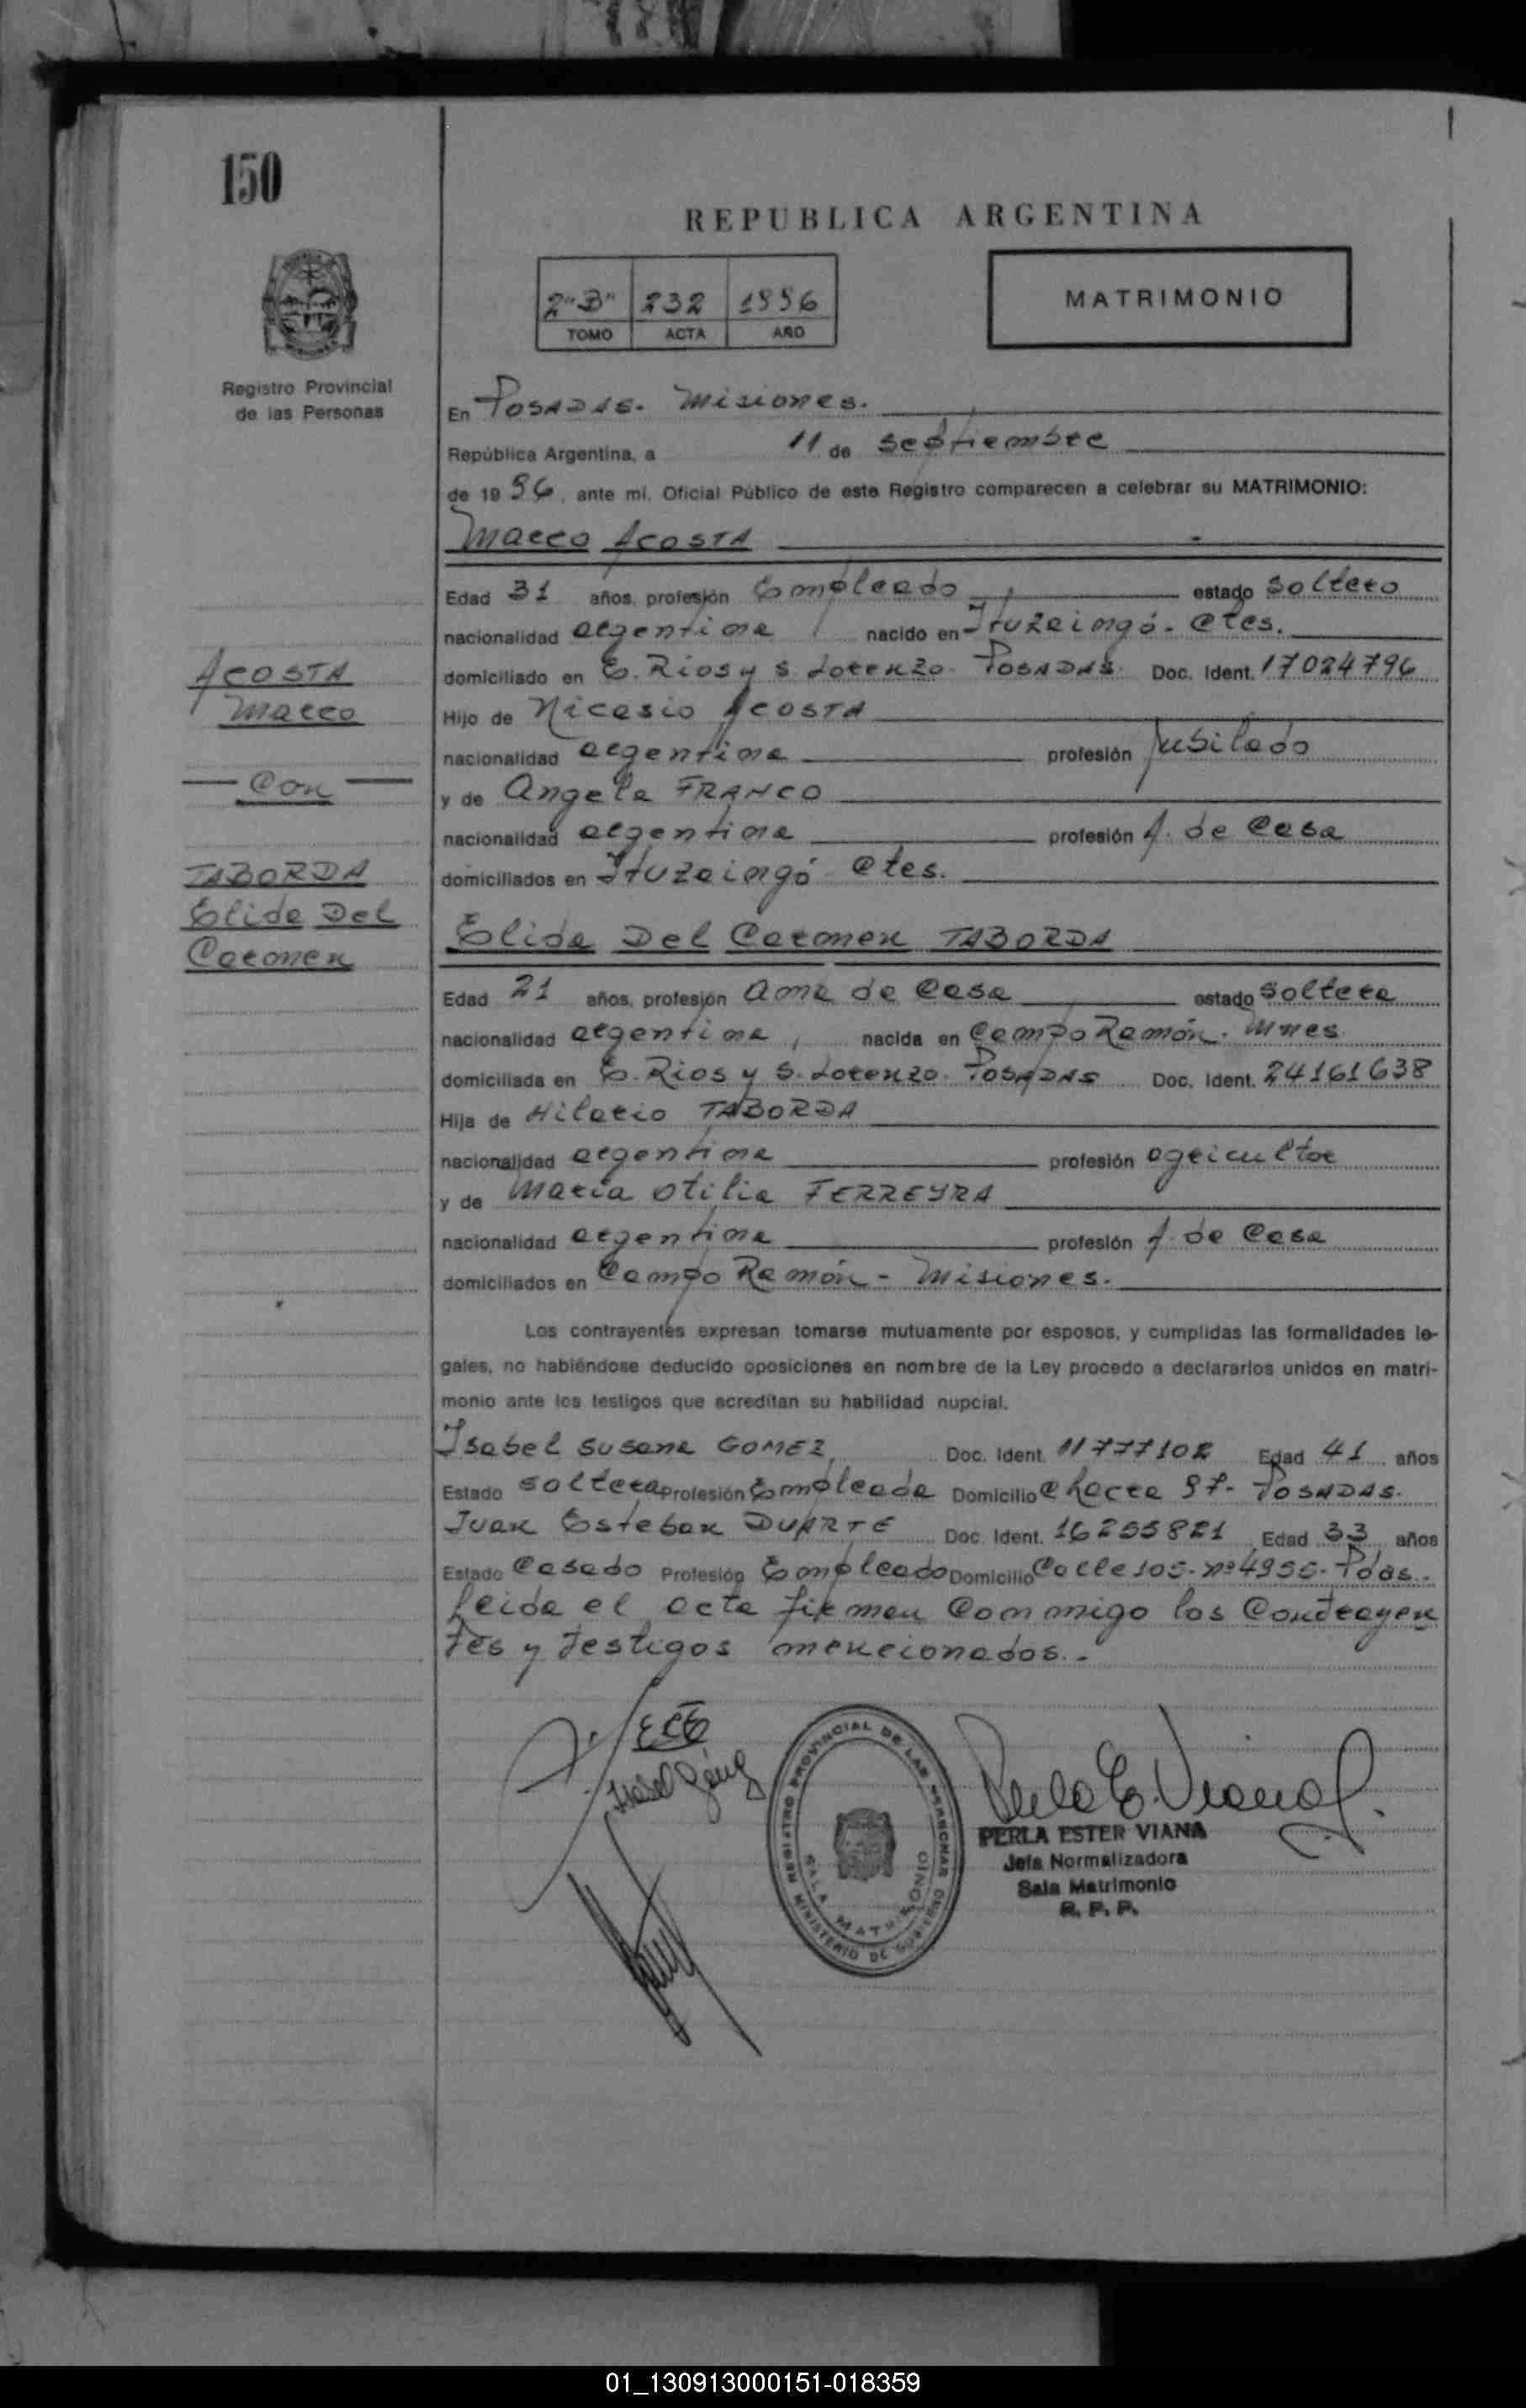 150
REPUBLICA ARGENTINA
2"B" 232 1996
TOMO ACTA AÑO
MATRIMONIO
Registro Provincial
de las Personas
En POSADAS. Misiones.
República Argentina, a 11 de septiembre
de 1996, ante mi, Oficial Público de este Registro comparecen a celebrar su MATRIMONIO:
Marco ACOSTA
Edad 31 años, profesión Empleado estado soltero
nacionalidad argentina nacido en Ituzaingó - Ctes.
domiciliado en E. Rios y S. Lorenzo - POSADAS Doc. Ident. 17024796
Hijo de Nicasio ACOSTA
nacionalidad argentina profesión Jubilado
y de Angela FRANCO
nacionalidad argentina profesión A. de Casa
domiciliados en Ituzaingó Ctes.
ACOSTA
Marco
Con
TABORDA
Elida Del
Carmen
Elida Del Carmen TABORDA
Edad 21 años, profesión Ama de Casa estado soltera
nacionalidad argentina, nacida en Campo Ramón. Mnes.
domiciliada en E. Rios y S. Lorenzo. POSADAS Doc. Ident. 24161638
Hija de Hilario TABORDA
nacionalidad argentina profesión agricultor
y de María Otilia FERREYRA
nacionalidad argentina profesión A. de Casa
domiciliados en Campo Ramón - Misiones.
Los contrayentes expresan tomarse mutuamente por esposos, y cumplidas las formalidades le-
gales, no habiéndose deducido oposiciones en nombre de la Ley procedo a declararlos unidos en matri-
monio ante los testigos que acreditan su habilidad nupcial.
Isabel Susana GOMEZ, Doc. Ident. 11777102 Edad 41 años
Estado soltera Profesión Empleada Domicilio Chacra POSADAS.
Juan Esteban DUARTE Doc. Ident. 16255821 Edad 33 años
Estado Casado Profesión Empleado Domicilio Calle 105. nº 4955. Pdas.
Leida el acta firman conmigo los Contrayen
tes y testigos mencionados.-
REGISTRO PROVINCIAL DE LAS PERSONAS
MINISTERIO DE GOBIERNO
SALA MATRIMONIO
PERLA ESTER VIANA
Jefa Normalizadora
Sala Matrimonio
R. P. P.
01_130913000151-018359